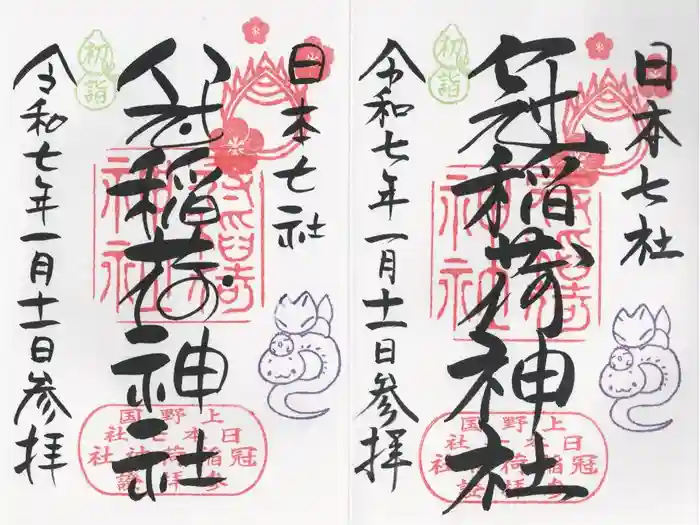 日本七社
冠稲荷神社
令和七年一月十一日参拝
初詣
上野国
日本七社
冠稲荷社
参拝証
日本七社
冠稲荷神社
令和七年一月十一日参拝
初詣
上野国
日本七社
冠稲荷社
参拝証